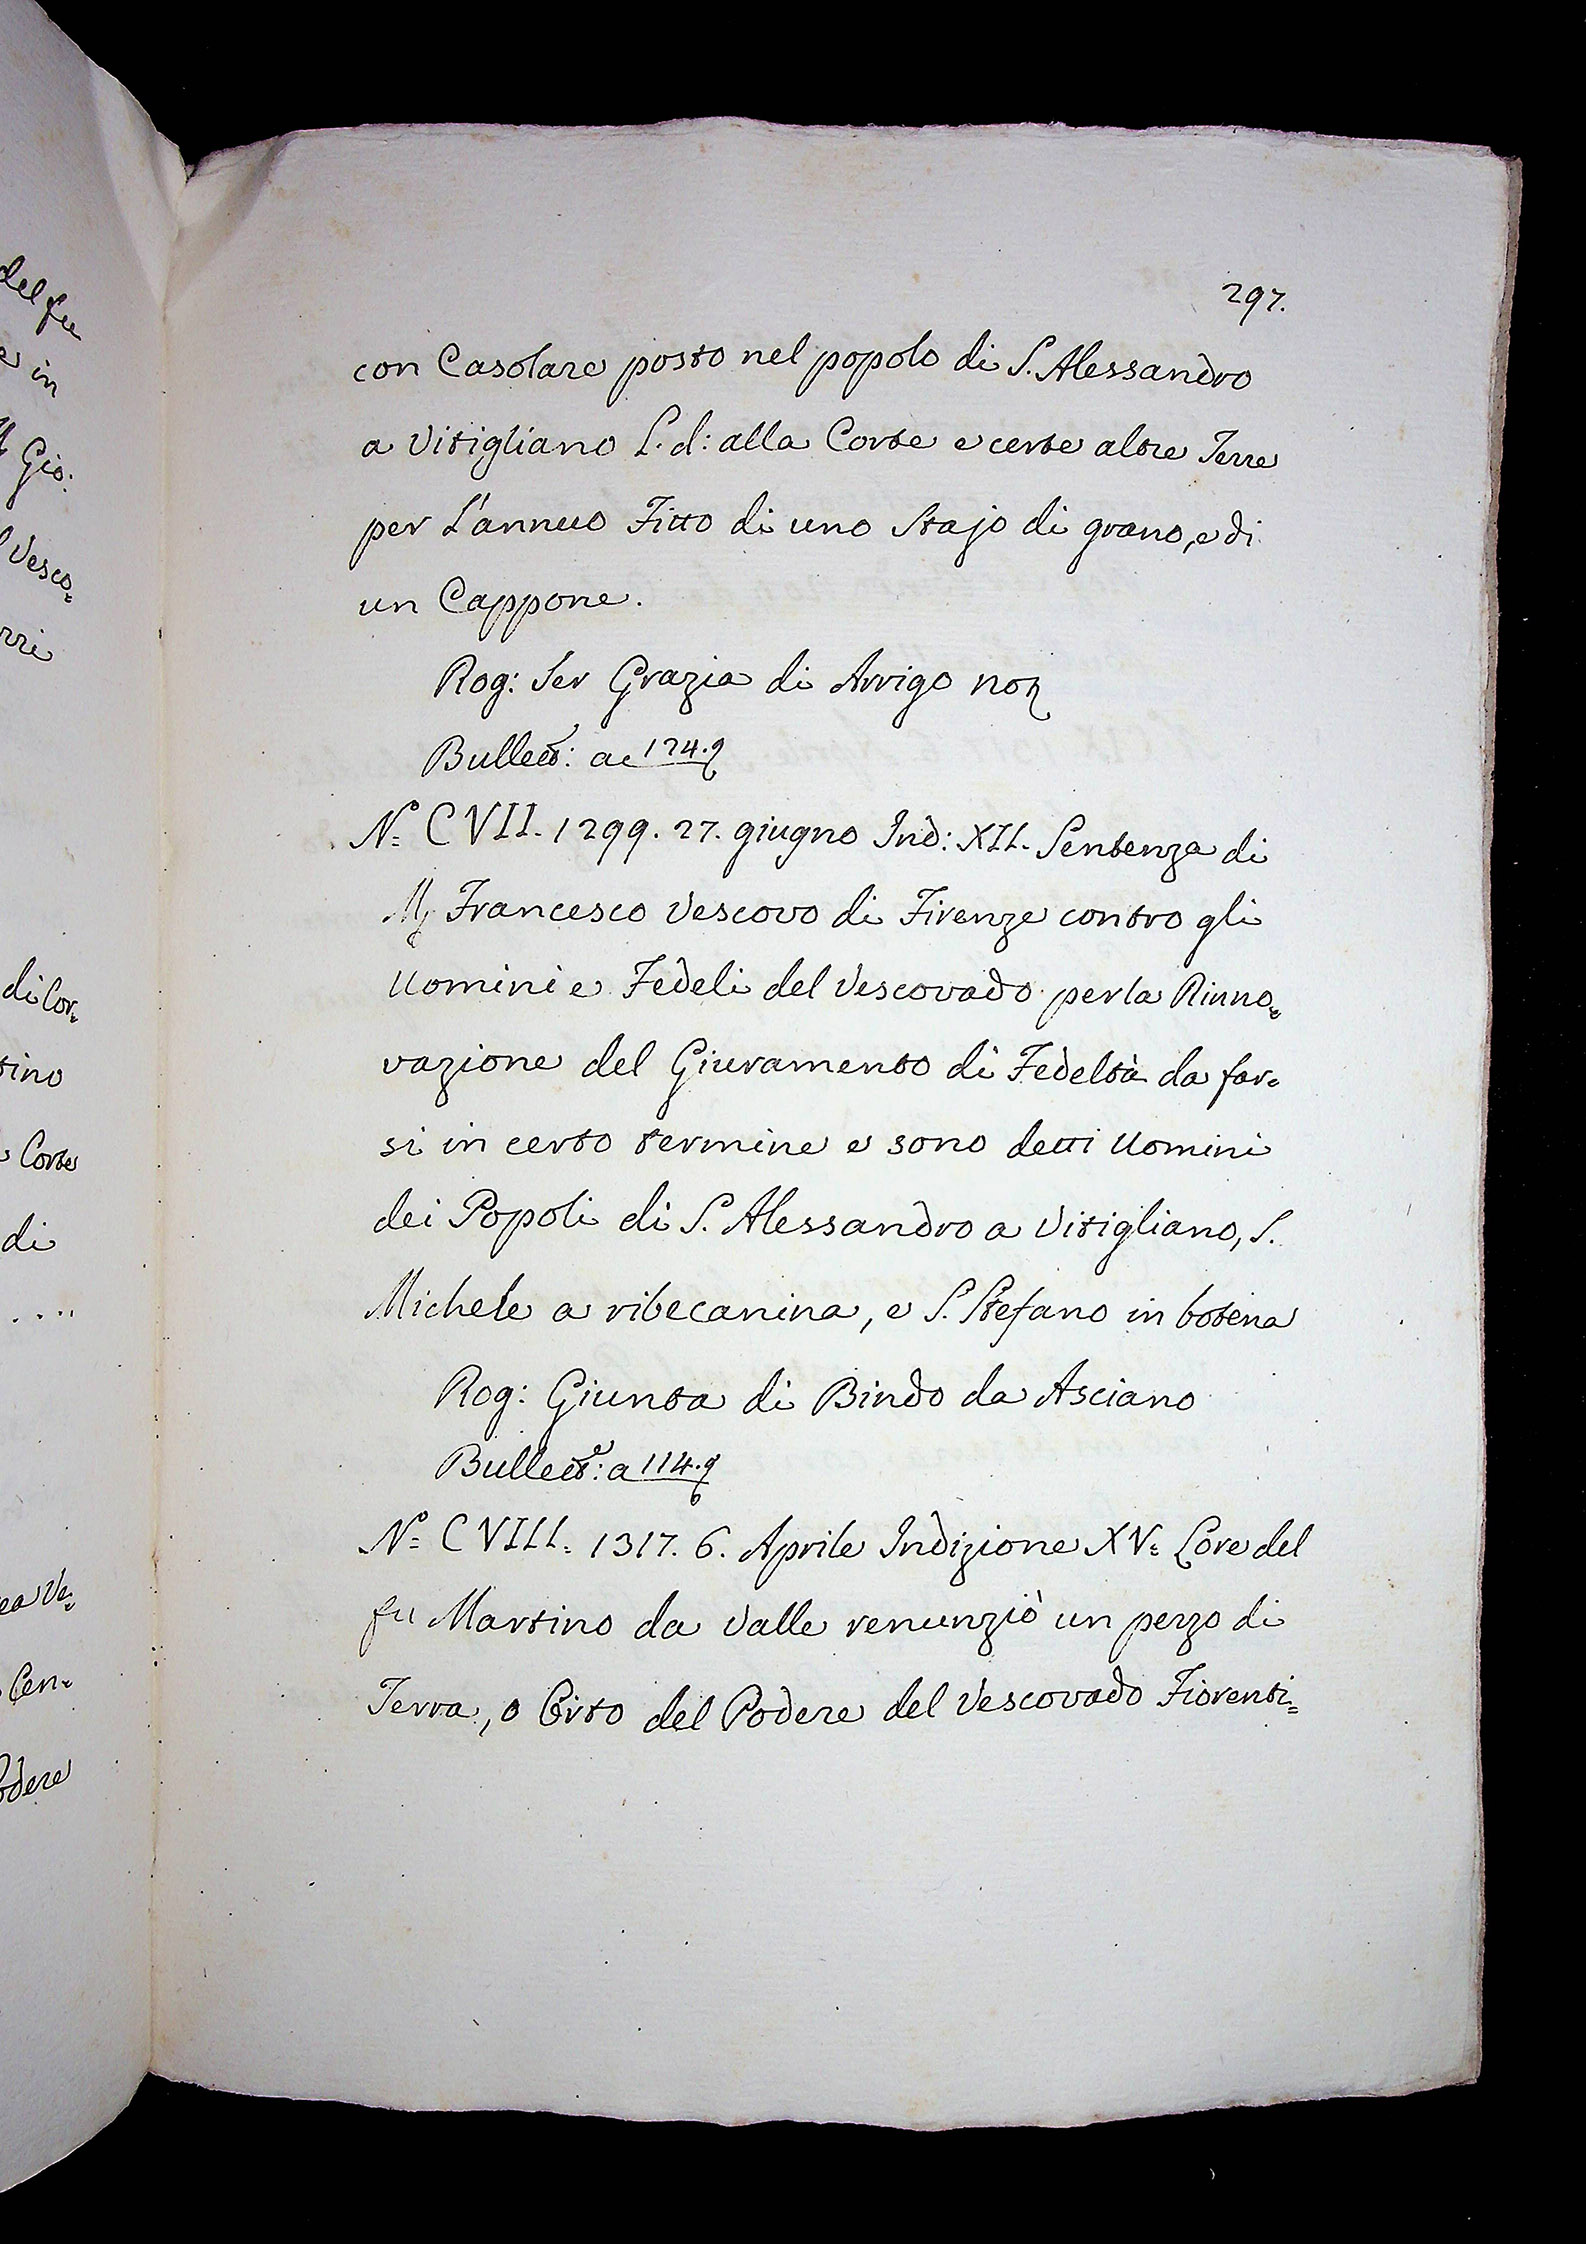 297.
con Casolare posto nel popolo di S. Alessandro
a Vitigliano L. d: alla Corte e certe altre Terre
per L'annuo Fitto di uno Stajo di grano, e di
un Cappone.
Rog: Ser Grazia di Arrigo
Bullett: 124.
Nº CVII. 1299. 27. giugno Ind: XII. Sentenza di
Francesco Vescovo di Firenze contro gli
Uomini e Fedeli del Vescovado per la Rinno=
vazione del Giuramento di Fedeltà da far=
si in certo termine e sono detti Uomini
dei Popoli di S. Alessandro a Vitigliano, S.
Michele a ribecanina, e S. Stefano in botena
Rog: Giunta di Bindo da Asciano
Bullett: a 114.
Nº CVIII. 1317. 6. Aprile Indizione XV. Lore del
fu Martino da Valle renunziò un pezzo di
Terra, o del Podere del Vescovado Fiorenti=
del fu
e in
Gio:
Vesco=
rri
di Cor=
tino
Corte
di
....
Ve=
Cen=
odere